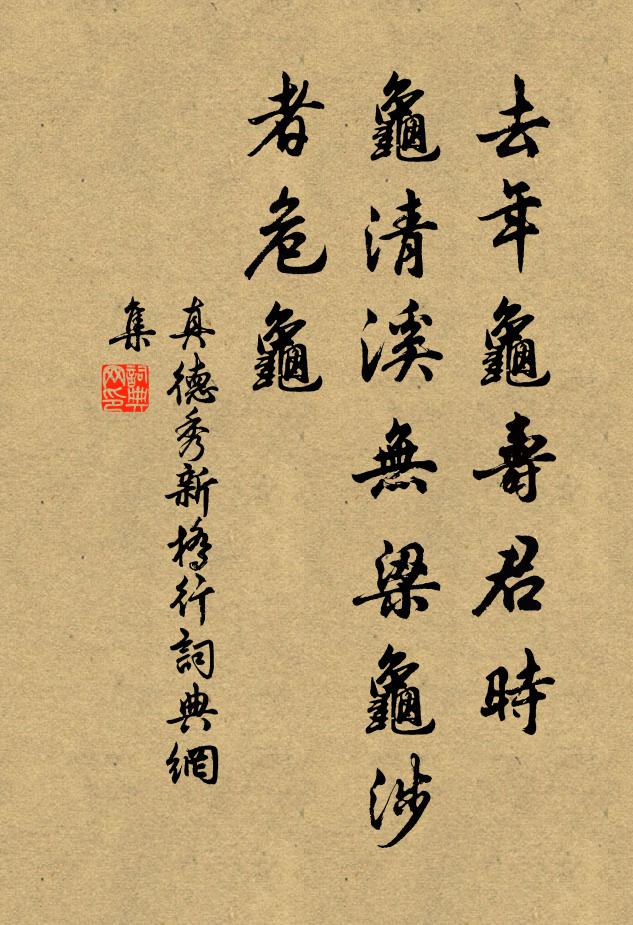 去年龜壽君時
龜清溪無梁龜涉
者危龜
真德秀新橋行詞典網
集
詞典
网印